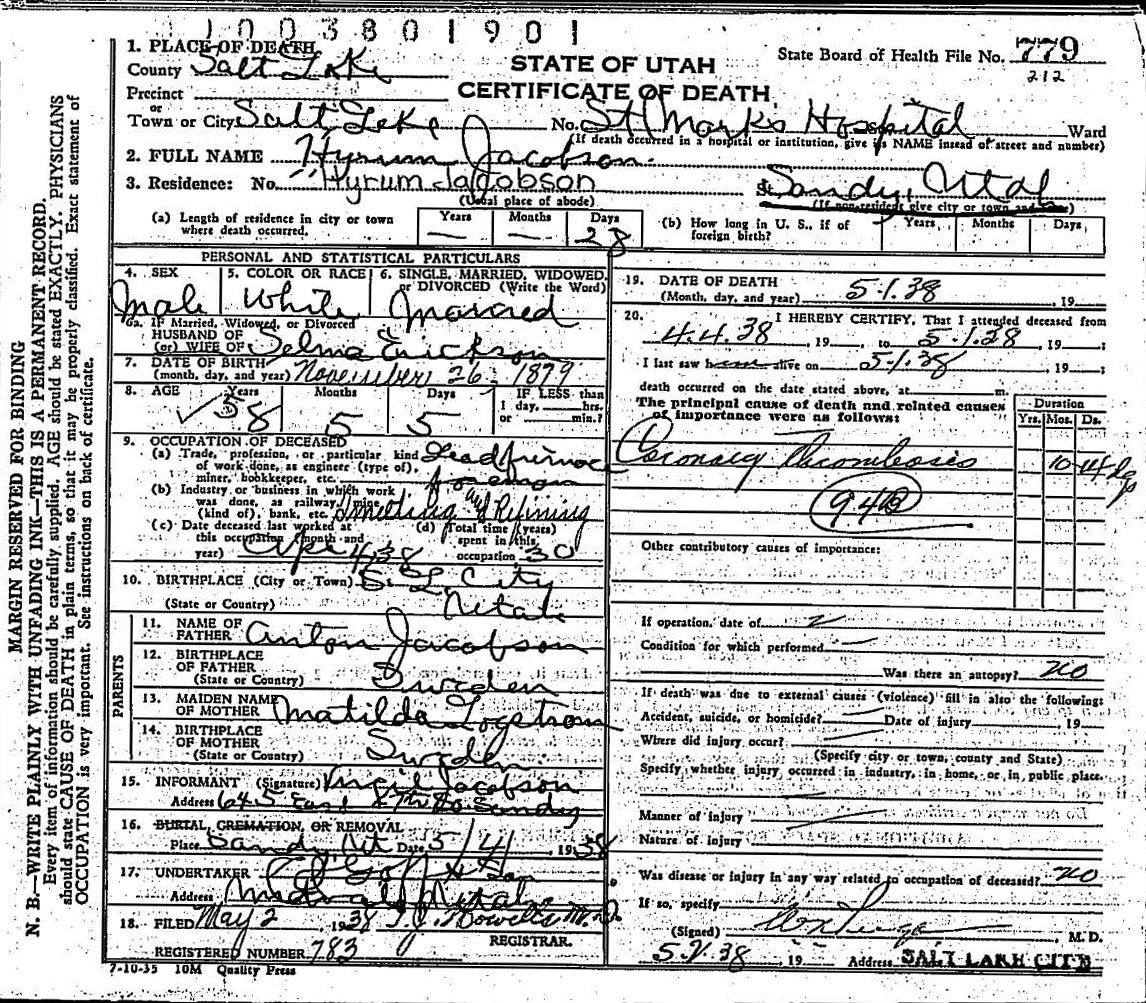 1003801901
1. PLACE OF DEATH
County Salt Lake
STATE OF UTAH
CERTIFICATE OF DEATH
State Board of Health File No. 779
212
Precinct
or
Town or City Salt Lake No. St Marks Hospital Ward
(If death occurred in a hospital or institution, give its NAME instead of street and number)
2. FULL NAME Hyrum Jacobson
3. Residence: No. Hyrum Jacobson St. Sandy, Utah
(Usual place of abode) (If non-resident give city or town
(a) Length of residence in city or town where death occurred. Years — Months — Days 28
(b) How long in U. S., if of foreign birth? Years Months Days
PERSONAL AND STATISTICAL PARTICULARS
4. SEX 5. COLOR OR RACE 6. SINGLE, MARRIED, WIDOWED, or DIVORCED (Write the Word)
Male White Married
6a. IF Married, Widowed, or Divorced
HUSBAND OF
(or) WIFE OF Selma Erickson
7. DATE OF BIRTH
(month, day, and year) November 26, 1879
8. AGE Years Months Days IF LESS than
1 day, hrs.
or min.?
58 5 5
9. OCCUPATION OF DECEASED
(a) Trade, profession, or particular kind of work done, as engineer (type of), miner, bookkeeper, etc. Lead furnace foreman
(b) Industry or business in which work was done, as railway, mine (kind of), bank, etc. Smelting and Refining
(c) Date deceased last worked at this occupation (month and year) Apr 4, 38
(d) Total time (years) spent in this occupation 30
10. BIRTHPLACE (City or Town) S. L. City
(State or Country) Utah
PARENTS
11. NAME OF FATHER Anton Jacobson
12. BIRTHPLACE OF FATHER
(State or Country) Sweden
13. MAIDEN NAME OF MOTHER Matilda
14. BIRTHPLACE OF MOTHER
(State or Country) Sweden
15. INFORMANT (Signature) Jacobson
Address 645 East So Sandy
16. BURIAL, CREMATION, OR REMOVAL
Place Sandy, Ut Date 5/4, 1938
17. UNDERTAKER Goff & Son
Address Midvale Utah
18. FILED May 2 1938 M.D.
REGISTRAR.
REGISTERED NUMBER 783
7-10-35 10M Quality Press
19. DATE OF DEATH
(Month, day, and year) 5-1-38, 19
20. I HEREBY CERTIFY, That I attended deceased from
4.4.38, 19 to 5-1-38, 19
I last saw h alive on 5-1-38, 19
death occurred on the date stated above, at m.
The principal cause of death and related causes of importance were as follows:
Duration
Yrs. Mos. Ds.
Coronary Thrombosis
94b
Other contributory causes of importance:
If operation, date of
Condition for which performed
Was there an autopsy? no
If death was due to external causes (violence) fill in also the following:
Accident, suicide, or homicide? Date of injury 19
Where did injury occur?
(Specify city or town, county and State)
Specify whether injury occurred in industry, in home, or in public place.
Manner of injury
Nature of injury
Was disease or injury in any way related to occupation of deceased? no
If so, specify
(Signed) , M. D.
5-2-38, 19 Address SALT LAKE CITY
MARGIN RESERVED FOR BINDING
N. B.—WRITE PLAINLY WITH UNFADING INK—THIS IS A PERMANENT RECORD.
Every item of information should be carefully supplied. AGE should be stated EXACTLY. PHYSICIANS
should state CAUSE OF DEATH in plain terms, so that it may be properly classified. Exact statement of
OCCUPATION is very important. See instructions on back of certificate.